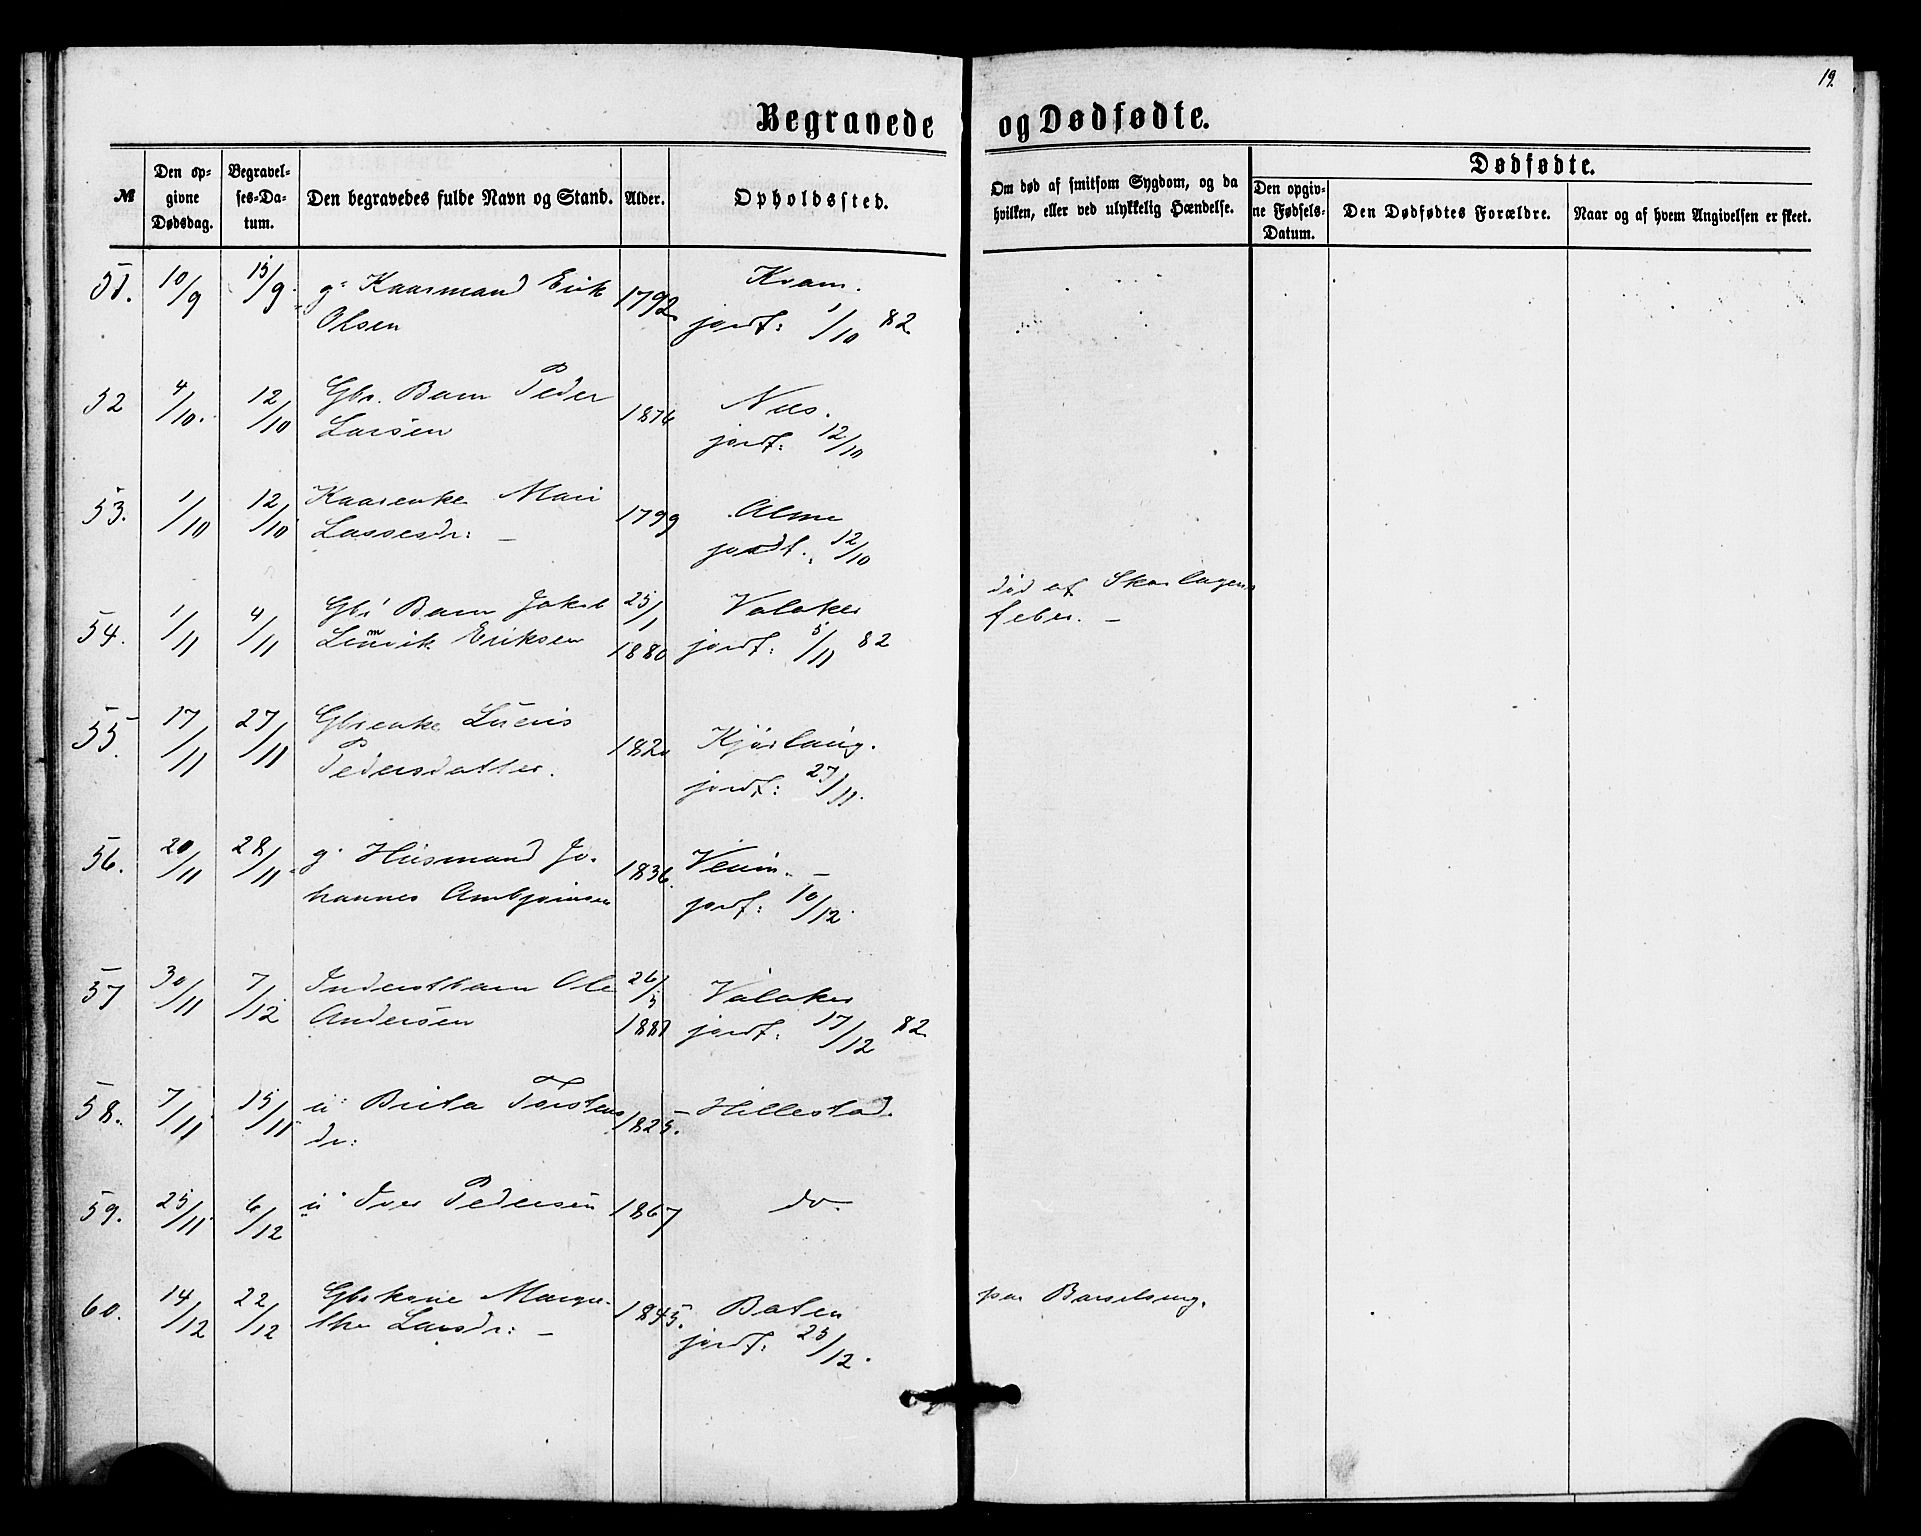 19.
Begravede og Dødfødte.
№
Den opgivne Dødsdag.
Begravelses-Datum.
Den begravedes fulde Navn og Stand.
Alder.
Opholdssted.
Om død af smitsom Sygdom, og da hvilken, eller ved ulykkelig Hændelse.
Dødfødte.
Den opgivne Fødsels-Datum.
Den Dødfødtes Forældre.
Naar og af hvem Angivelsen er skeet.
51. 10/9 15/9 g. Kaarmand Erik 1792 Kvam.
Olsen jordf: 1/10 82
52 4/10. 12/10 Gbr. Barn Peder 1876 Næs.
Larsen jordf: 12/10
53. 1/10 12/10 Kaarenke Mari 1799 Alme
Lassesdr: – jordf: 12/10
54. 1/11 4/11 Gbr Barn Jakob 25/1 Valaker død af Skarlagens
Eriksen 1880 jordf: 5/11 82 feber. –
55. 17/11 27/11 Gbrenke 1820 Kjørlaug.
Pedersdatter. jordf: 27/11.
56. 20/11 28/11 g. Husmand Jo- 1836. –
hannes Ambjørnsen jordf: 10/12.
57 30/11 7/12 Inderstbarn Ole 26/5 Valaker
Andersen 188 jordf: 17/12 82
58. 7/11 15/11 u Brita Torstens 1825. Hillestad.
dr:
59. 25/11 6/12 u Iver Pedersen 1867 do.
60. 14/12 22/12 Gbrkone Margre- 1845. paa Barselseng.
the Larsdr: – jordf: 25/12.